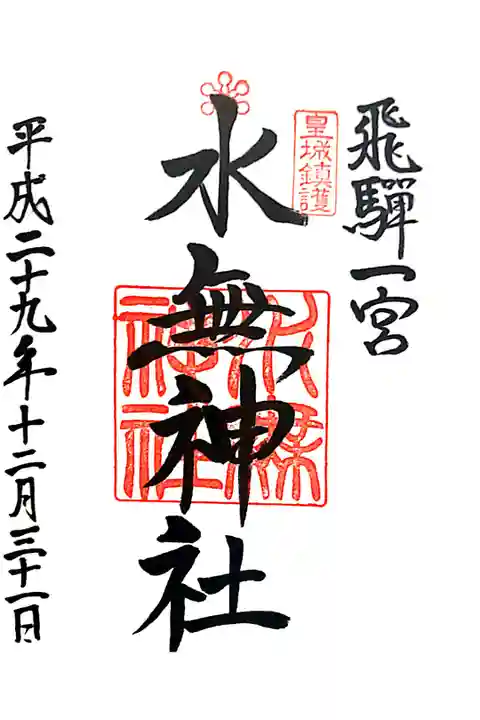 飛騨一宮
皇城鎮護
水無神社
水無神社
平成二十九年十二月三十一日